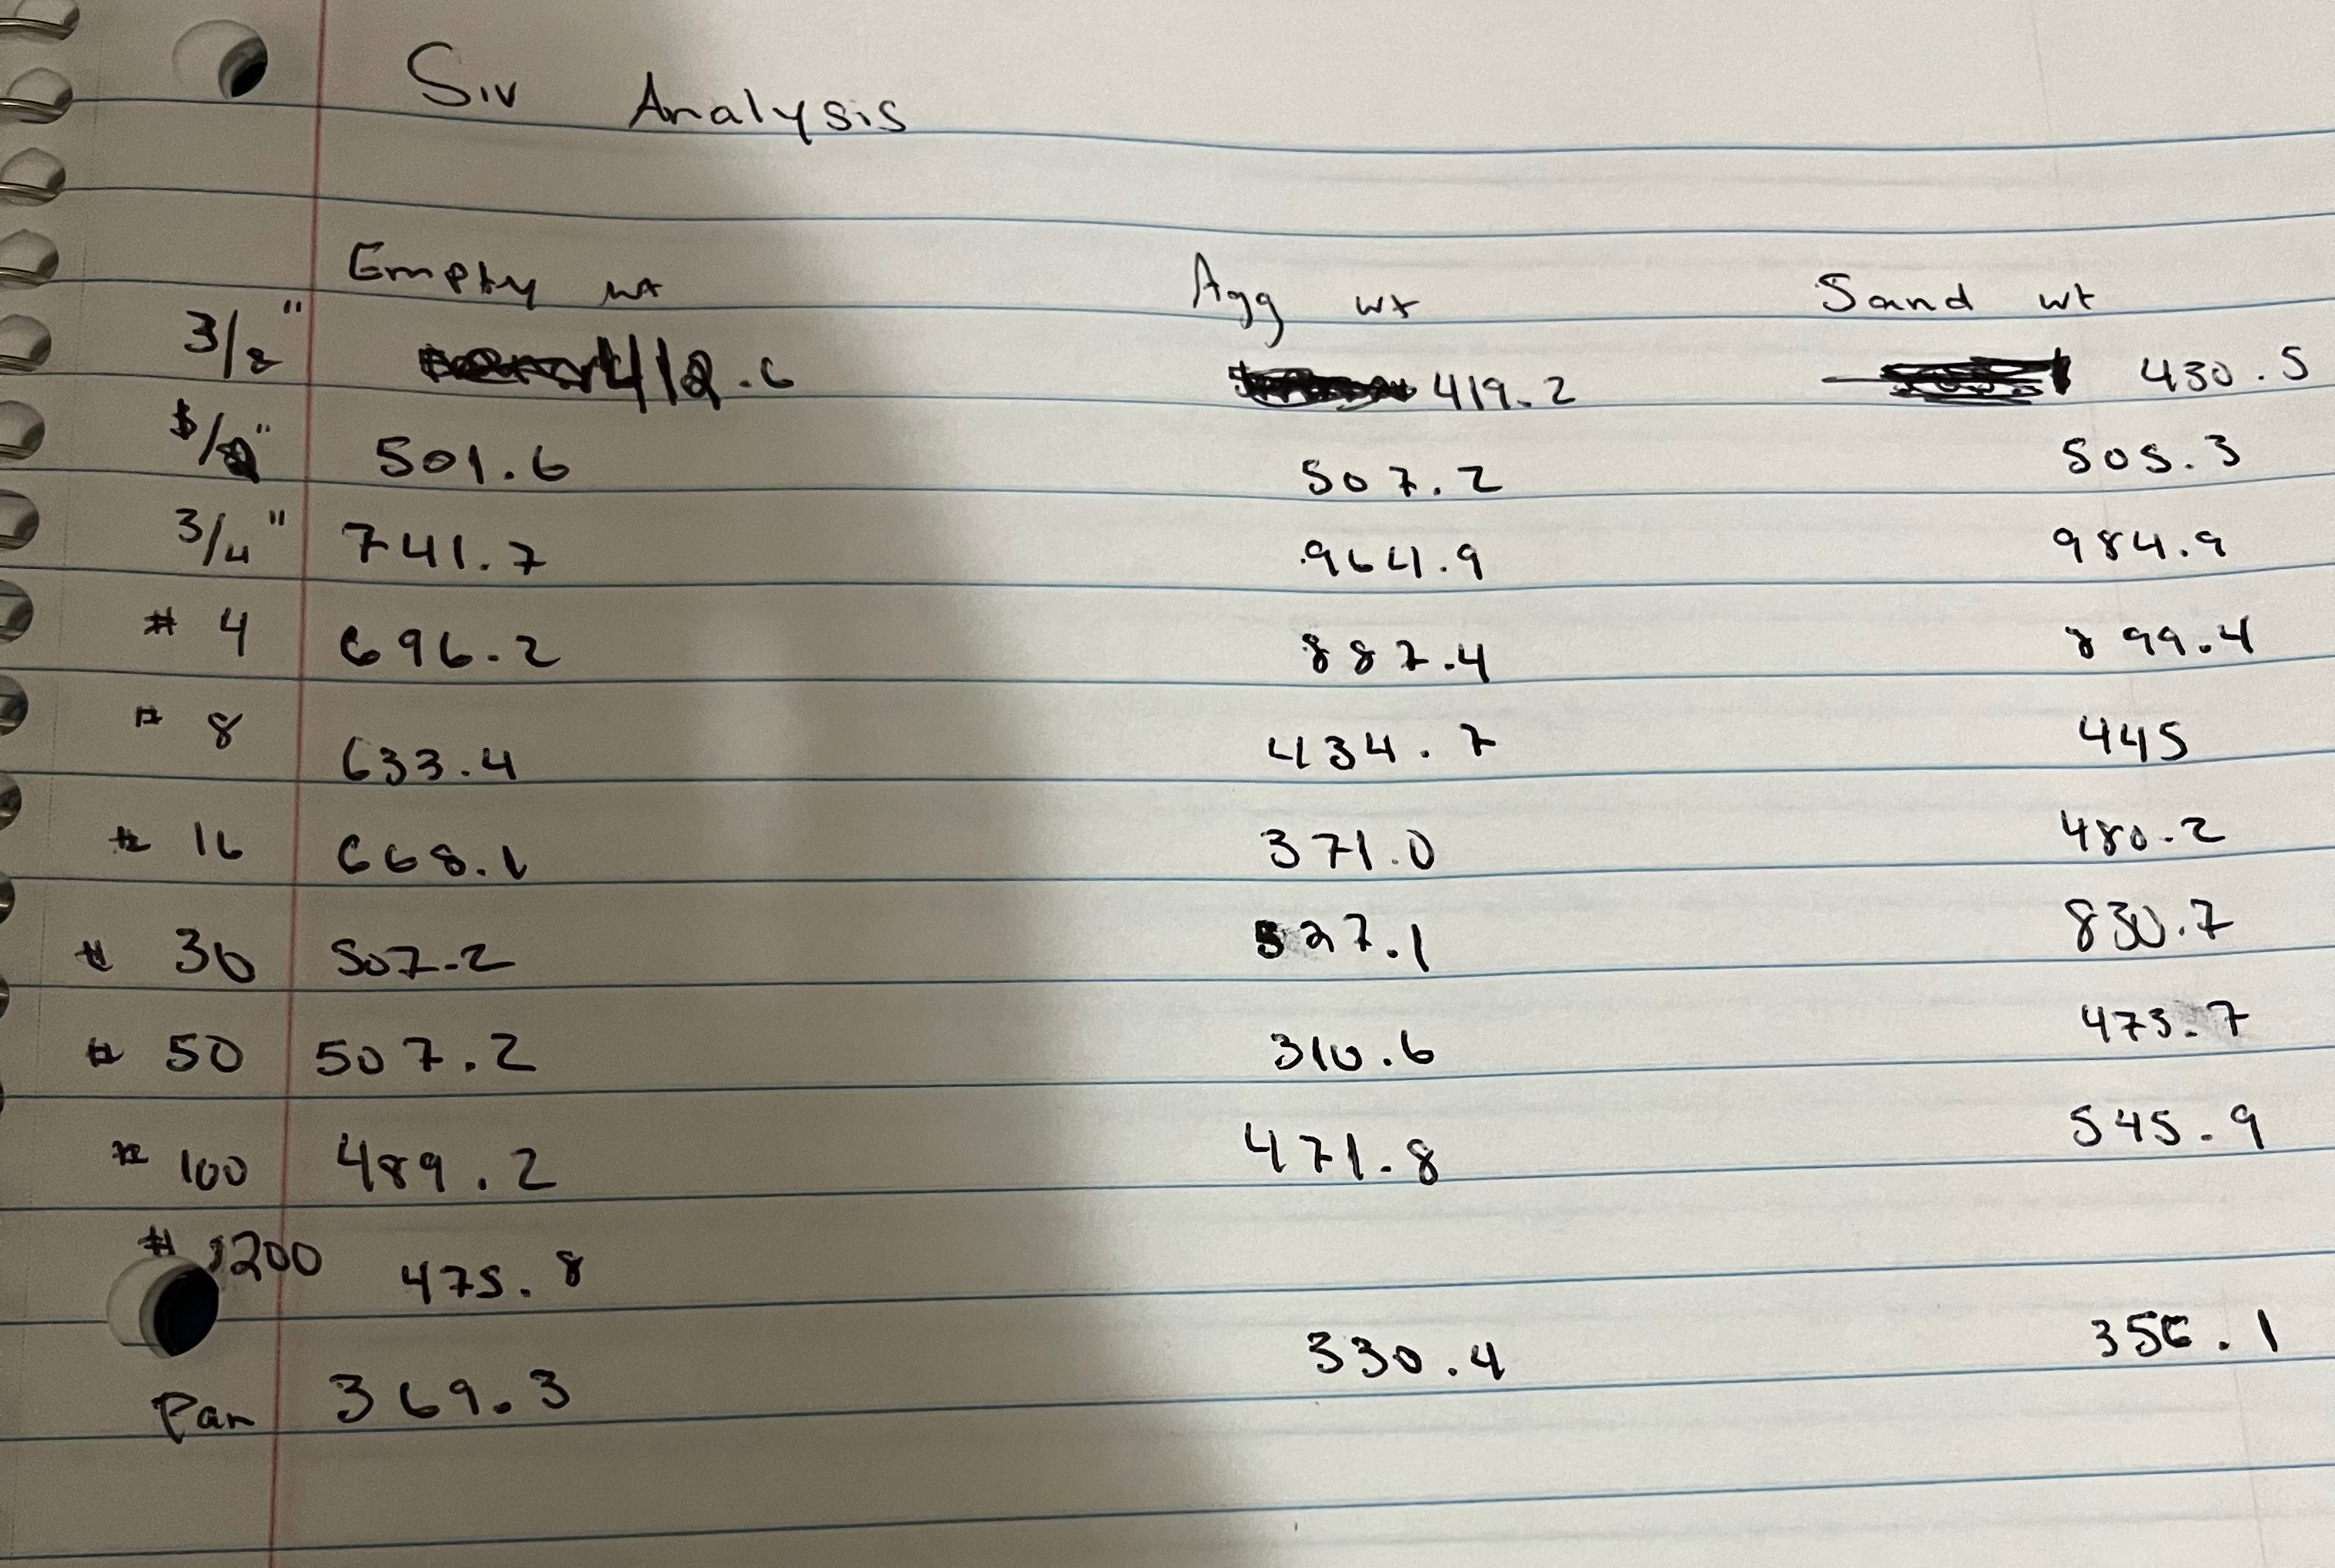 Siv Analysis
Empty wt Agg wt Sand wt
3/8" 412.6 419.2 430.5
501.6 507.2 505.3
3/4" 741.7 964.9 984.9
# 4 696.2 887.4 899.4
# 8 633.4 434.7 445
# 16 668.1 371.0 480.2
# 30 507.2 527.1 830.7
# 50 507.2 310.6 473.7
# 100 489.2 471.8 545.9
# 200 475.8
Pan 369.3 330.4 356.1